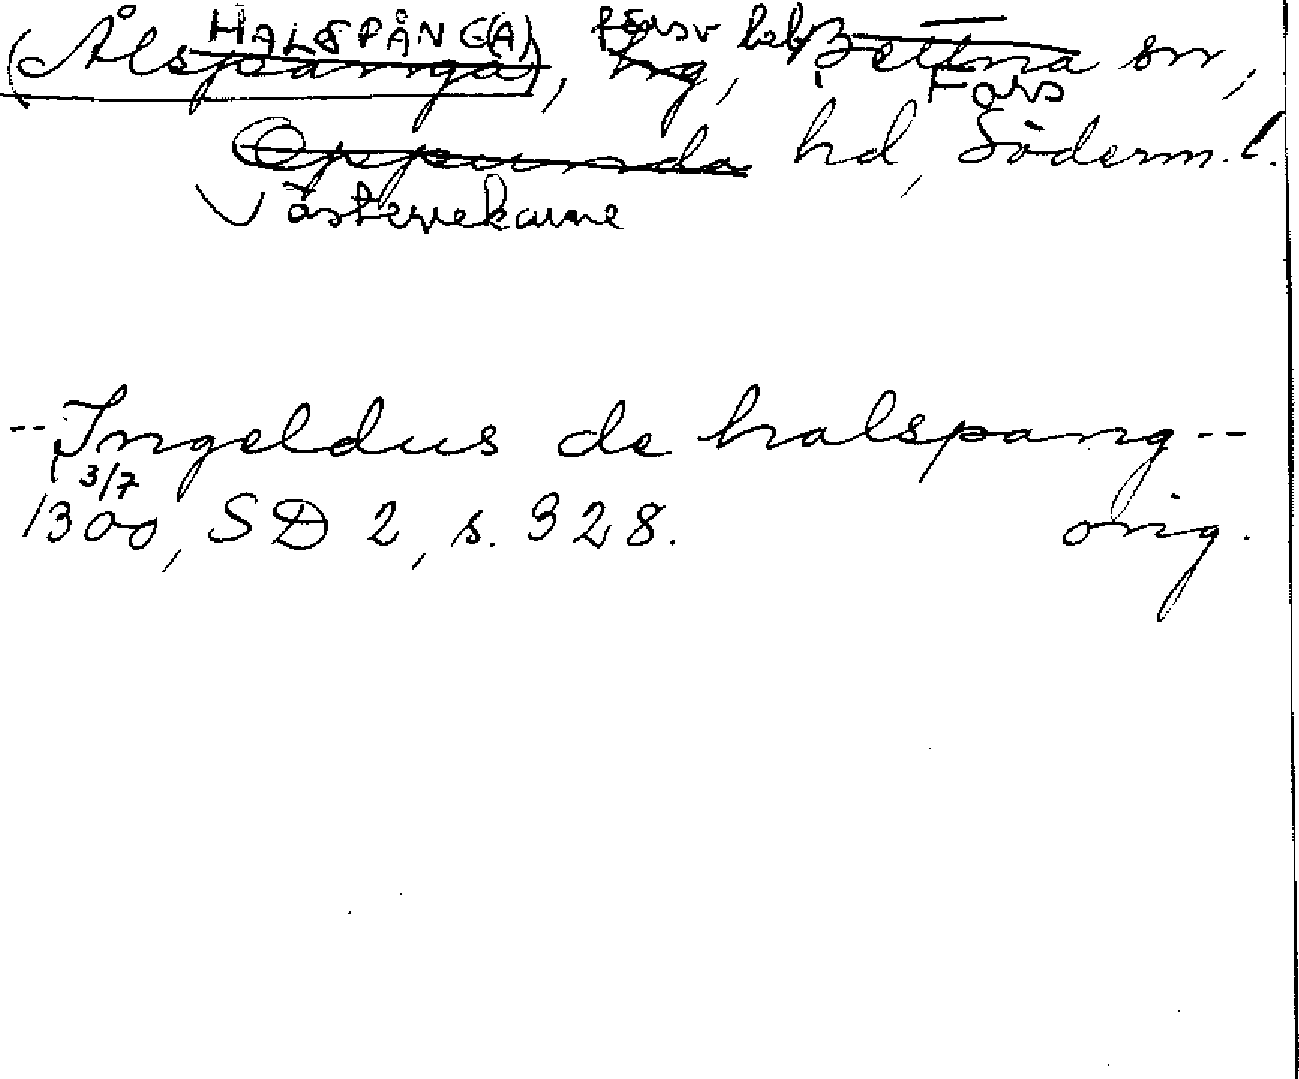 HALSPÅNG(A) försv beb
(Ålspånga), hg, Bettna sn,
Fors
Oppunda hd, Söderm.l.
Västerrekarne
-- Ingeldus de halspang --
3/7
1300, SD 2, s. 328. orig.